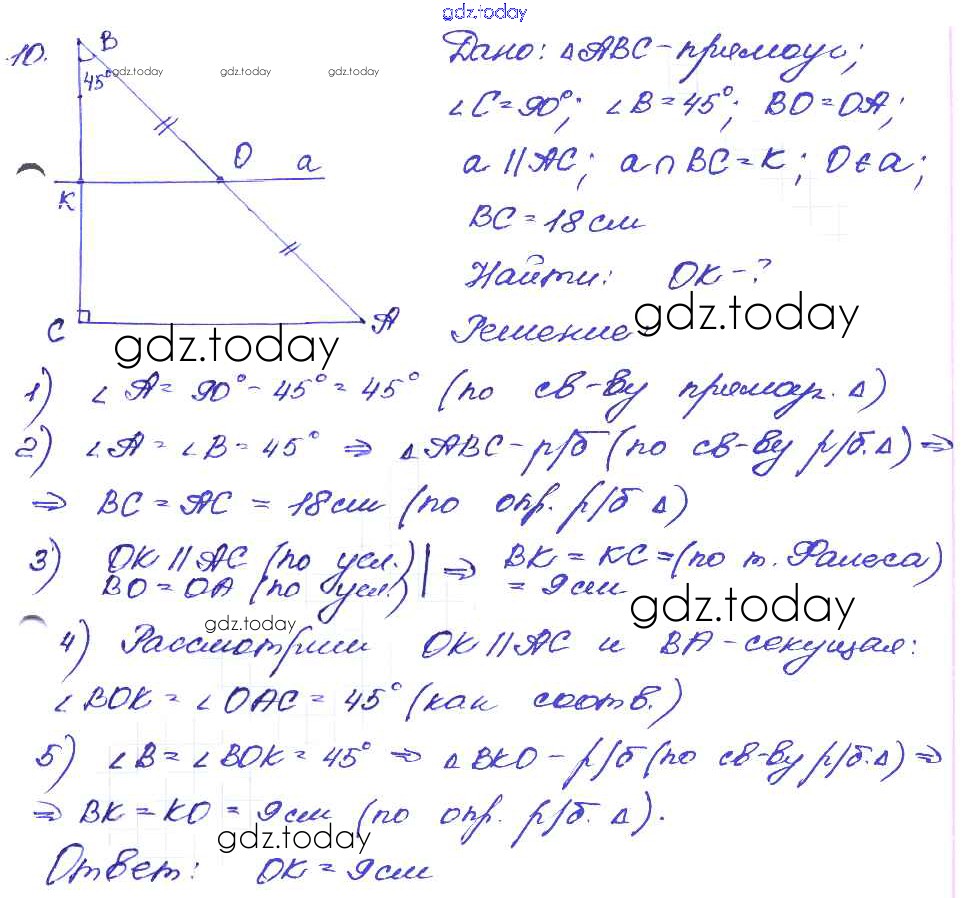 gdz.today
10.
B
45°
gdz.today gdz.today gdz.today
O a
K
C A
gdz.today
Дано: ΔABC - прямоуг;
∠C = 90°; ∠B = 45°; BO = OA;
a || AC; a ∩ BC = K; O ∈ a;
BC = 18 см
Найти: OK - ?
gdz.today
Решение:
1) ∠A = 90° - 45° = 45° (по св-ву прямоуг. Δ)
2) ∠A = ∠B = 45° ⇒ ΔABC - р/б (по св-ву р/б. Δ) ⇒
⇒ BC = AC = 18 см (по опр. р/б Δ)
3) OK || AC (по усл.) | ⇒ BK = KC = (по т. Фалеса)
BO = OA (по усл.) | = 9 см
gdz.today
gdz.today
4) Рассмотрим OK || AC и BA - секущая:
∠BOK = ∠OAC = 45° (как соотв.)
5) ∠B = ∠BOK = 45° ⇒ ΔBKO - р/б (по св-ву р/б. Δ) ⇒
⇒ BK = KO = 9 см (по опр. р/б. Δ).
gdz.today
Ответ: OK = 9 см